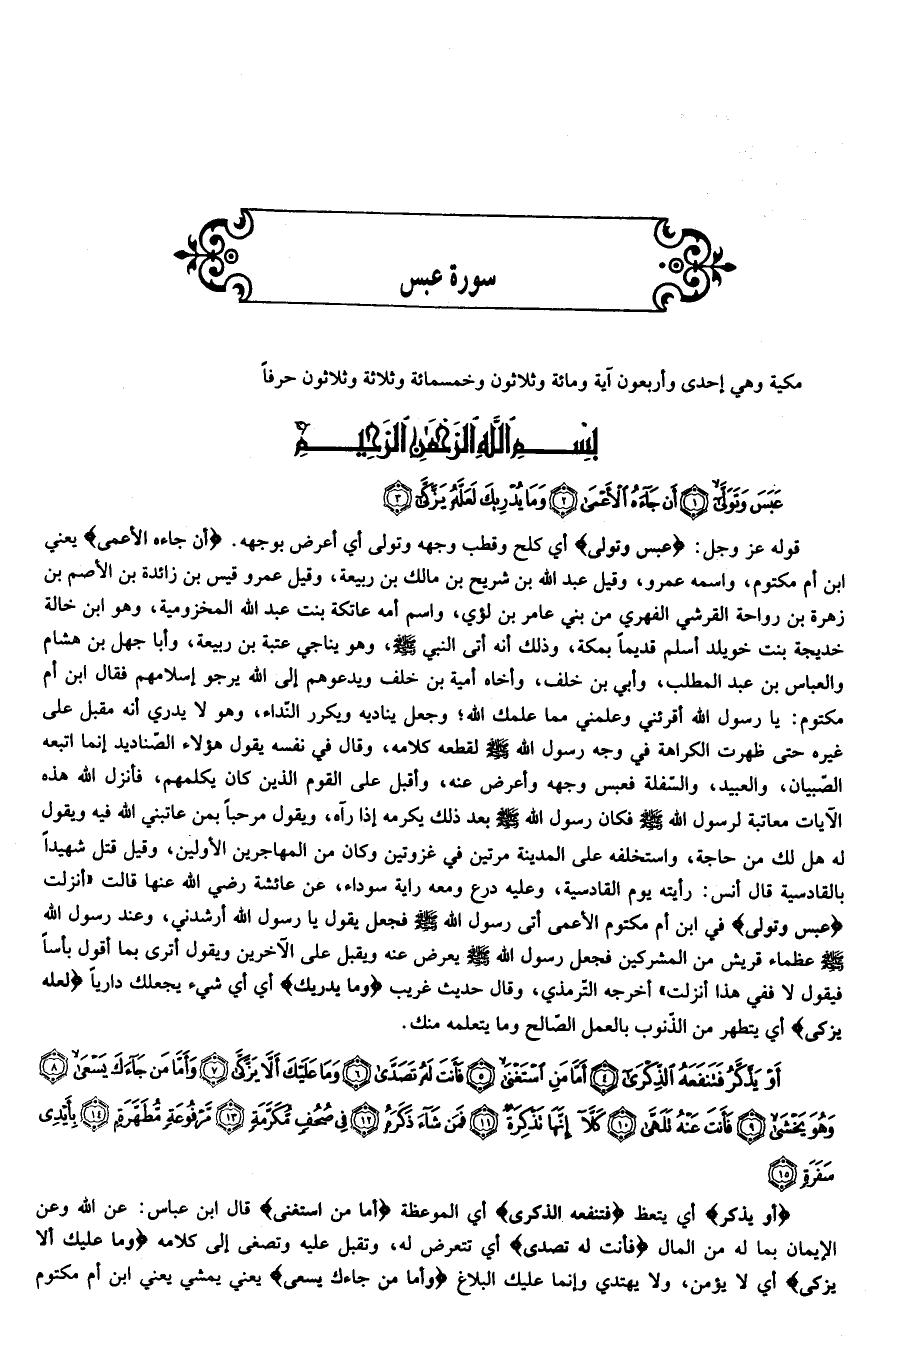 سورة عبس
مكية وهي إحدى وأربعون آية ومائة وثلاثون وخمسمائة وثلاثة وثلاثون حرفاً
بِسْمِ ٱللَّهِ ٱلرَّحْمَٰنِ ٱلرَّحِيمِ
عَبَسَ وَتَوَلَّىٰٓ ﴿١﴾ أَن جَآءَهُ ٱلْأَعْمَىٰ ﴿٢﴾ وَمَا يُدْرِيكَ لَعَلَّهُۥ يَزَّكَّىٰٓ ﴿٣﴾
قوله عز وجل: ﴿عبس وتولى﴾ أي كلح وقطب وجهه وتولى أي أعرض بوجهه. ﴿أن جاءه الأعمى﴾ يعني
ابن أم مكتوم، واسمه عمرو، وقيل عبد الله بن شريح بن مالك بن ربيعة، وقيل عمرو قيس بن زائدة بن الأصم بن
زهرة بن رواحة القرشي الفهري من بني عامر بن لؤي، واسم أمه عاتكة بنت عبد الله المخزومية، وهو ابن خالة
خديجة بنت خويلد أسلم قديماً بمكة، وذلك أنه أتى النبي ﷺ، وهو يناجي عتبة بن ربيعة، وأبا جهل بن هشام
والعباس بن عبد المطلب، وأبي بن خلف، وأخاه أمية بن خلف ويدعوهم إلى الله يرجو إسلامهم فقال ابن أم
مكتوم: يا رسول الله أقرئني وعلمني مما علمك الله؛ وجعل يناديه ويكرر النّداء، وهو لا يدري أنه مقبل على
غيره حتى ظهرت الكراهة في وجه رسول الله ﷺ لقطعه كلامه، وقال في نفسه يقول هؤلاء الصّناديد إنما اتبعه
الصّبيان، والعبيد، والسّفلة فعبس وجهه وأعرض عنه، وأقبل على القوم الذين كان يكلمهم، فأنزل الله هذه
الآيات معاتبة لرسول الله ﷺ فكان رسول الله ﷺ بعد ذلك يكرمه إذا رآه، ويقول مرحباً بمن عاتبني الله فيه ويقول
له هل لك من حاجة، واستخلفه على المدينة مرتين في غزوتين وكان من المهاجرين الأولين، وقيل قتل شهيداً
بالقادسية قال أنس: رأيته يوم القادسية، وعليه درع ومعه راية سوداء، عن عائشة رضي الله عنها قالت «أنزلت
﴿عبس وتولى﴾ في ابن أم مكتوم الأعمى أتى رسول الله ﷺ فجعل يقول يا رسول الله أرشدني، وعند رسول الله
ﷺ عظماء قريش من المشركين فجعل رسول الله ﷺ يعرض عنه ويقبل على الآخرين ويقول أترى بما أقول بأساً
فيقول لا ففي هذا أنزلت» أخرجه التّرمذي، وقال حديث غريب ﴿وما يدريك﴾ أي أي شيء يجعلك دارياً ﴿لعله
يزكى﴾ أي يتطهر من الذّنوب بالعمل الصّالح وما يتعلمه منك.
أَوْ يَذَّكَّرُ فَتَنفَعَهُ ٱلذِّكْرَىٰٓ ﴿٤﴾ أَمَّا مَنِ ٱسْتَغْنَىٰ ﴿٥﴾ فَأَنتَ لَهُۥ تَصَدَّىٰ ﴿٦﴾ وَمَا عَلَيْكَ أَلَّا يَزَّكَّىٰ ﴿٧﴾ وَأَمَّا مَن جَآءَكَ يَسْعَىٰ ﴿٨﴾
وَهُوَ يَخْشَىٰ ﴿٩﴾ فَأَنتَ عَنْهُ تَلَهَّىٰ ﴿١٠﴾ كَلَّآ إِنَّهَا تَذْكِرَةٌ ﴿١١﴾ فَمَن شَآءَ ذَكَرَهُۥ ﴿١٢﴾ فِى صُحُفٍ مُّكَرَّمَةٍ ﴿١٣﴾ مَّرْفُوعَةٍ مُّطَهَّرَةٍۭ ﴿١٤﴾ بِأَيْدِى
سَفَرَةٍ ﴿١٥﴾
﴿أو يذكر﴾ أي يتعظ ﴿فتنفعه الذكرى﴾ أي الموعظة ﴿أما من استغنى﴾ قال ابن عباس: عن الله وعن
الإيمان بما له من المال ﴿فأنت له تصدى﴾ أي تتعرض له، وتقبل عليه وتصغى إلى كلامه ﴿وما عليك ألا
يزكى﴾ أي لا يؤمن، ولا يهتدي وإنما عليك البلاغ ﴿وأما من جاءك يسعى﴾ يعني يمشي يعني ابن أم مكتوم